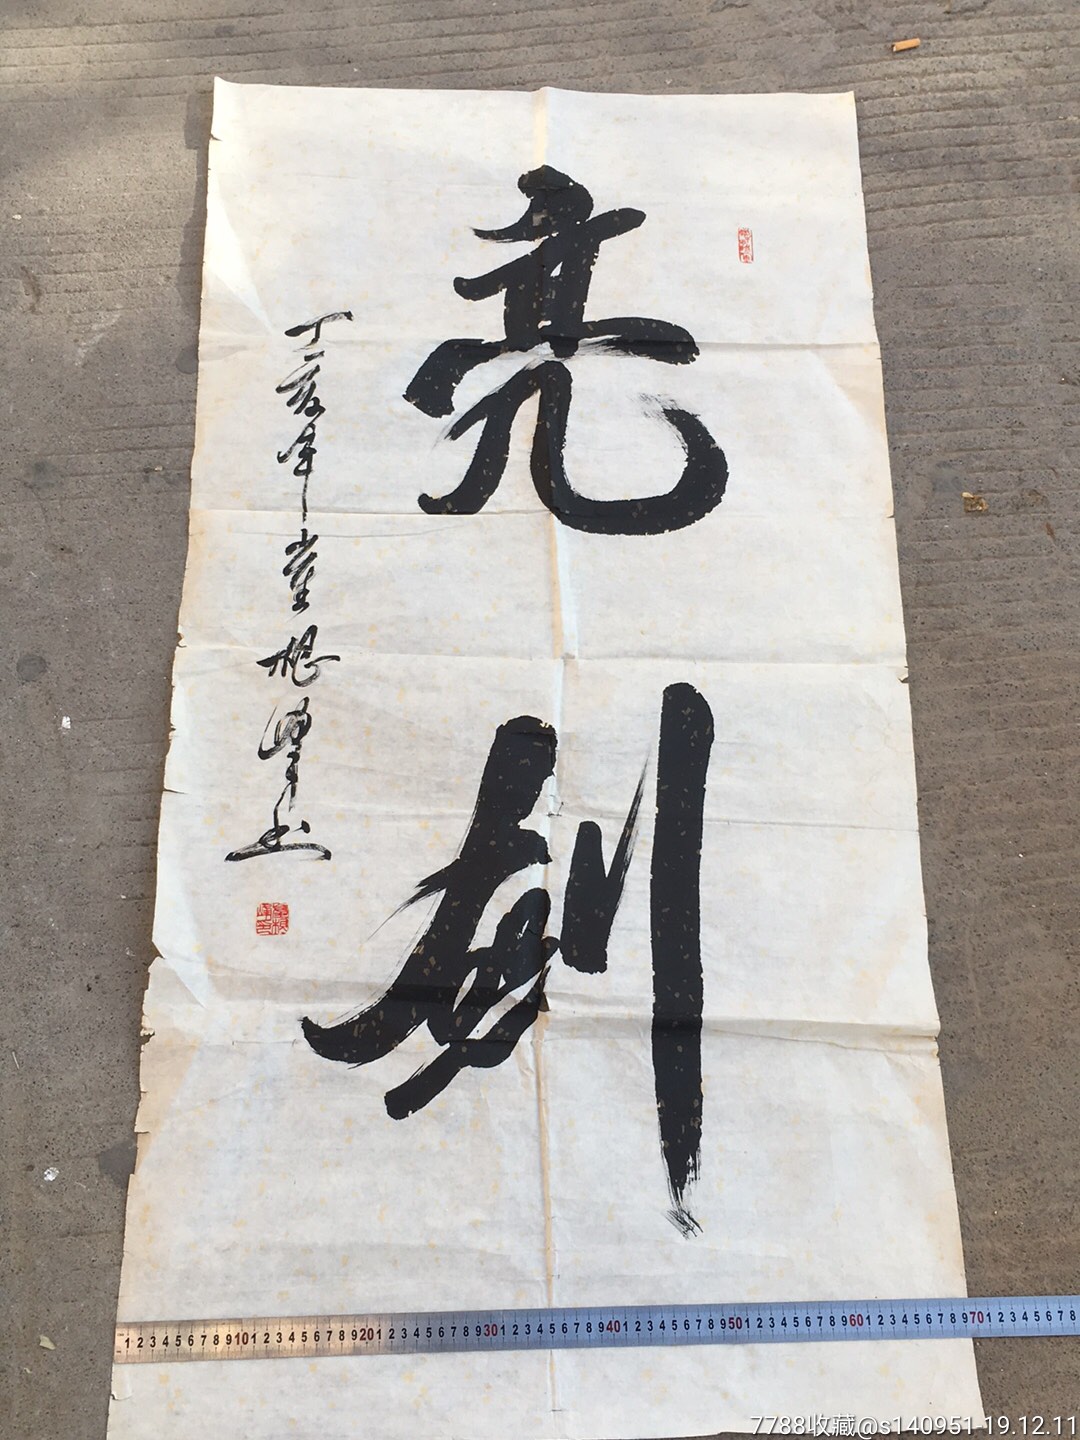 亮剑
丁亥年崔根峰书
1 2 3 4 5 6 7 8 9 10 1 2 3 4 5 6 7 8 9 20 1 2 3 4 5 6 7 8 9 30 1 2 3 4 5 6 7 8 9 40 1 2 3 4 5 6 7 8 9 50 1 2 3 4 5 6 7 8 9 60 1 2 3 4 5 6 7 8 9 70 1 2 3 4 5 6 7 8
7788收藏@s140951 19.12.11